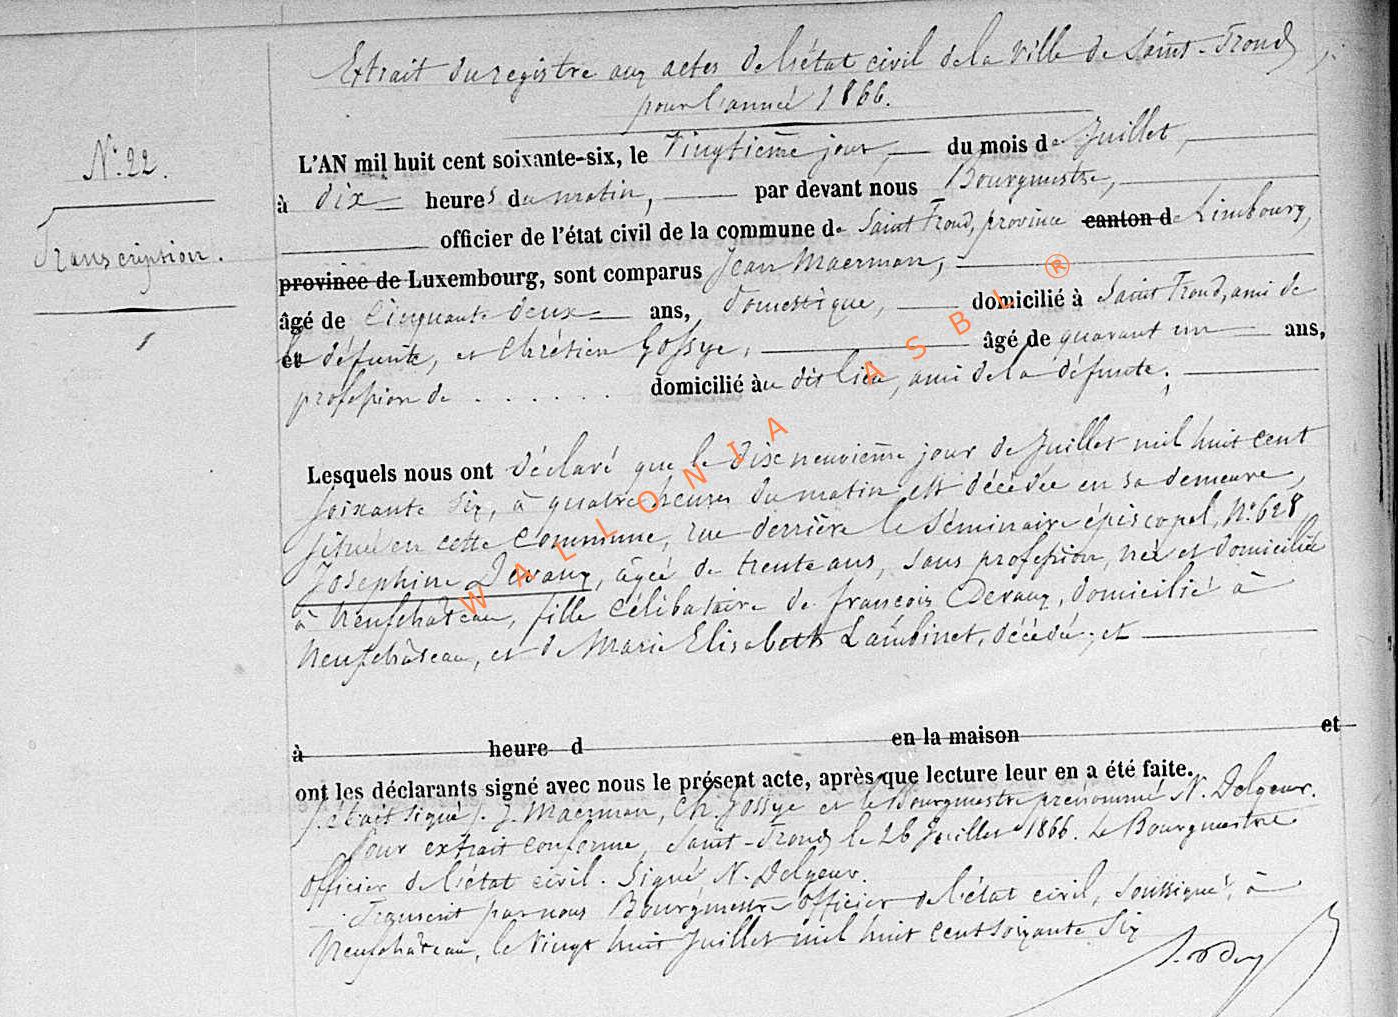 Extrait du registre aux actes de l'état civil de la Ville de Saint-Trond,
pour l'année 1866.
N° 22.
Transcription.
L'AN mil huit cent soixante-six, le vingtième jour, du mois de Juillet,
à dix heures du matin, par devant nous Bourgmestre,
officier de l'état civil de la commune de Saint Trond, province canton de Limbourg,
province de Luxembourg, sont comparus Jean Maerman,
âgé de Cinquante deux ans, domestique, domicilié à Saint Trond, ami de
et la défunte, et Chrétien Gossye, âgé de quarant un ans,
profession de . . . . . . domicilié au dit lieu, ami de la défunte;
Lesquels nous ont déclaré que le dix neuvième jour de Juillet mil huit cent
soixante six, à quatre heures du matin est décédée en sa demeure,
située en cette commune, rue derrière le Séminaire épiscopal, N° 628,
Josephine Devaux, âgée de trente ans, sans profession, née et domiciliée
à Neufchâteau, fille célibataire de françois Devaux, domicilié à
Neufchâteau, et de Marie Elisabeth Lambinet, décédée; et
à heure d en la maison et
ont les déclarants signé avec nous le présent acte, après que lecture leur en a été faite.
(. était signé). J. Maerman, Ch. Gossye et le Bourgmestre prénommé N. Delgeur.
Pour extrait conforme, Saint-Trond, le 26 Juillet 1866. Le Bourgmestre
officier de l'état civil. Signé N. Delgeur.
Transcrit par nous Bourgmestre officier de l'état civil, soussigné, à
Neufchâteau, le vingt huit Juillet mil huit cent soixante six
WALLONIA ASBL ®